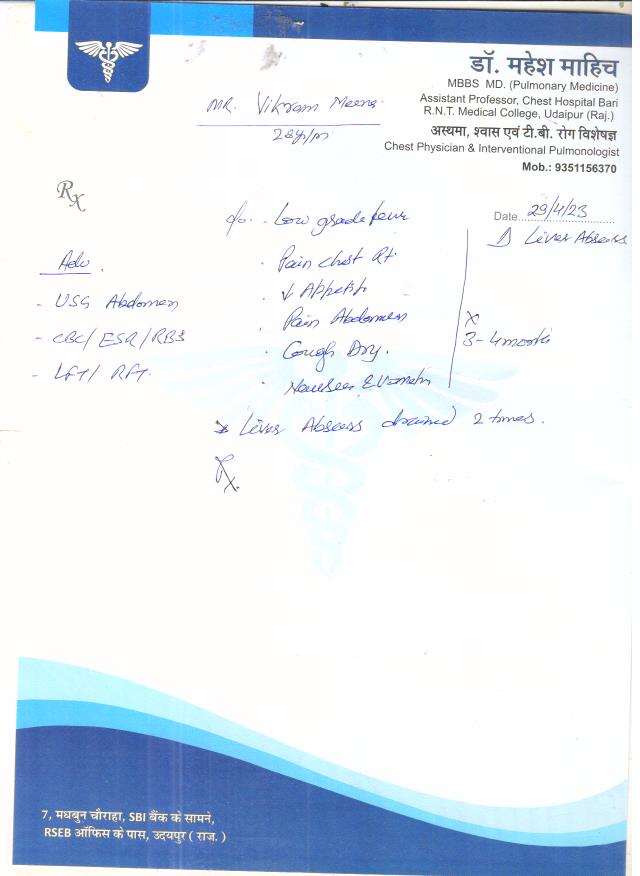 डॉ. महेश माहिच
MBBS MD. (Pulmonary Medicine)
Assistant Professor, Chest Hospital Bari
R.N.T. Medical College, Udaipur (Raj.)
अस्थमा, श्वास एवं टी.बी. रोग विशेषज्ञ
Chest Physician & Interventional Pulmonologist
Mob.: 9351156370
MR. Vikram Meena
28y/m
Rx
Date 29/4/23
c/o. Low grade fever
Δ Liver Abscess
Adv.
Pain chest Rt.
- USG Abdomen
↓ Appetite
Pain Abdomen
x
3-4 months
- CBC/ESR/RBS
Cough Dry.
- LFT/ RFT.
Nausea & Vomitn
Liver Abscess drained 2 times.
Rx.
7, मधबुन चौराहा, SBI बैंक के सामने,
RSEB ऑफिस के पास, उदयपुर ( राज. )